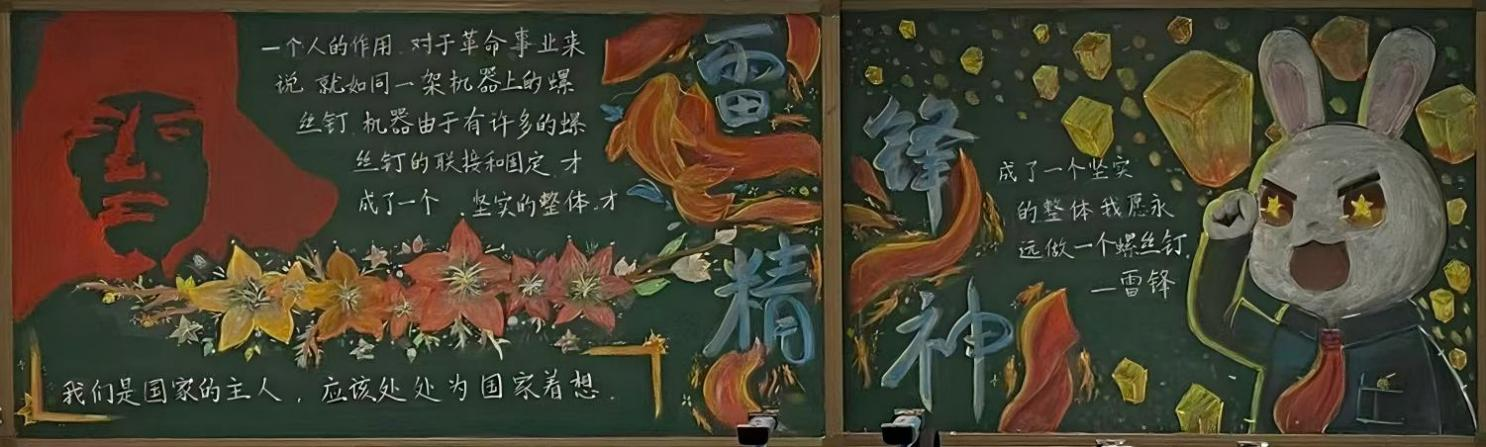 一个人的作用 对于革命事业来
说 就如同一架机器上的螺
丝钉 机器由于有许多的螺
丝钉的联接和固定 才
成了一个 . 坚实的整体. 才
我们是国家的主人 , 应该处处为国家着想 .
雷锋
精神
成了一个坚实
的整体我愿永
远做一个螺丝钉.
—雷锋